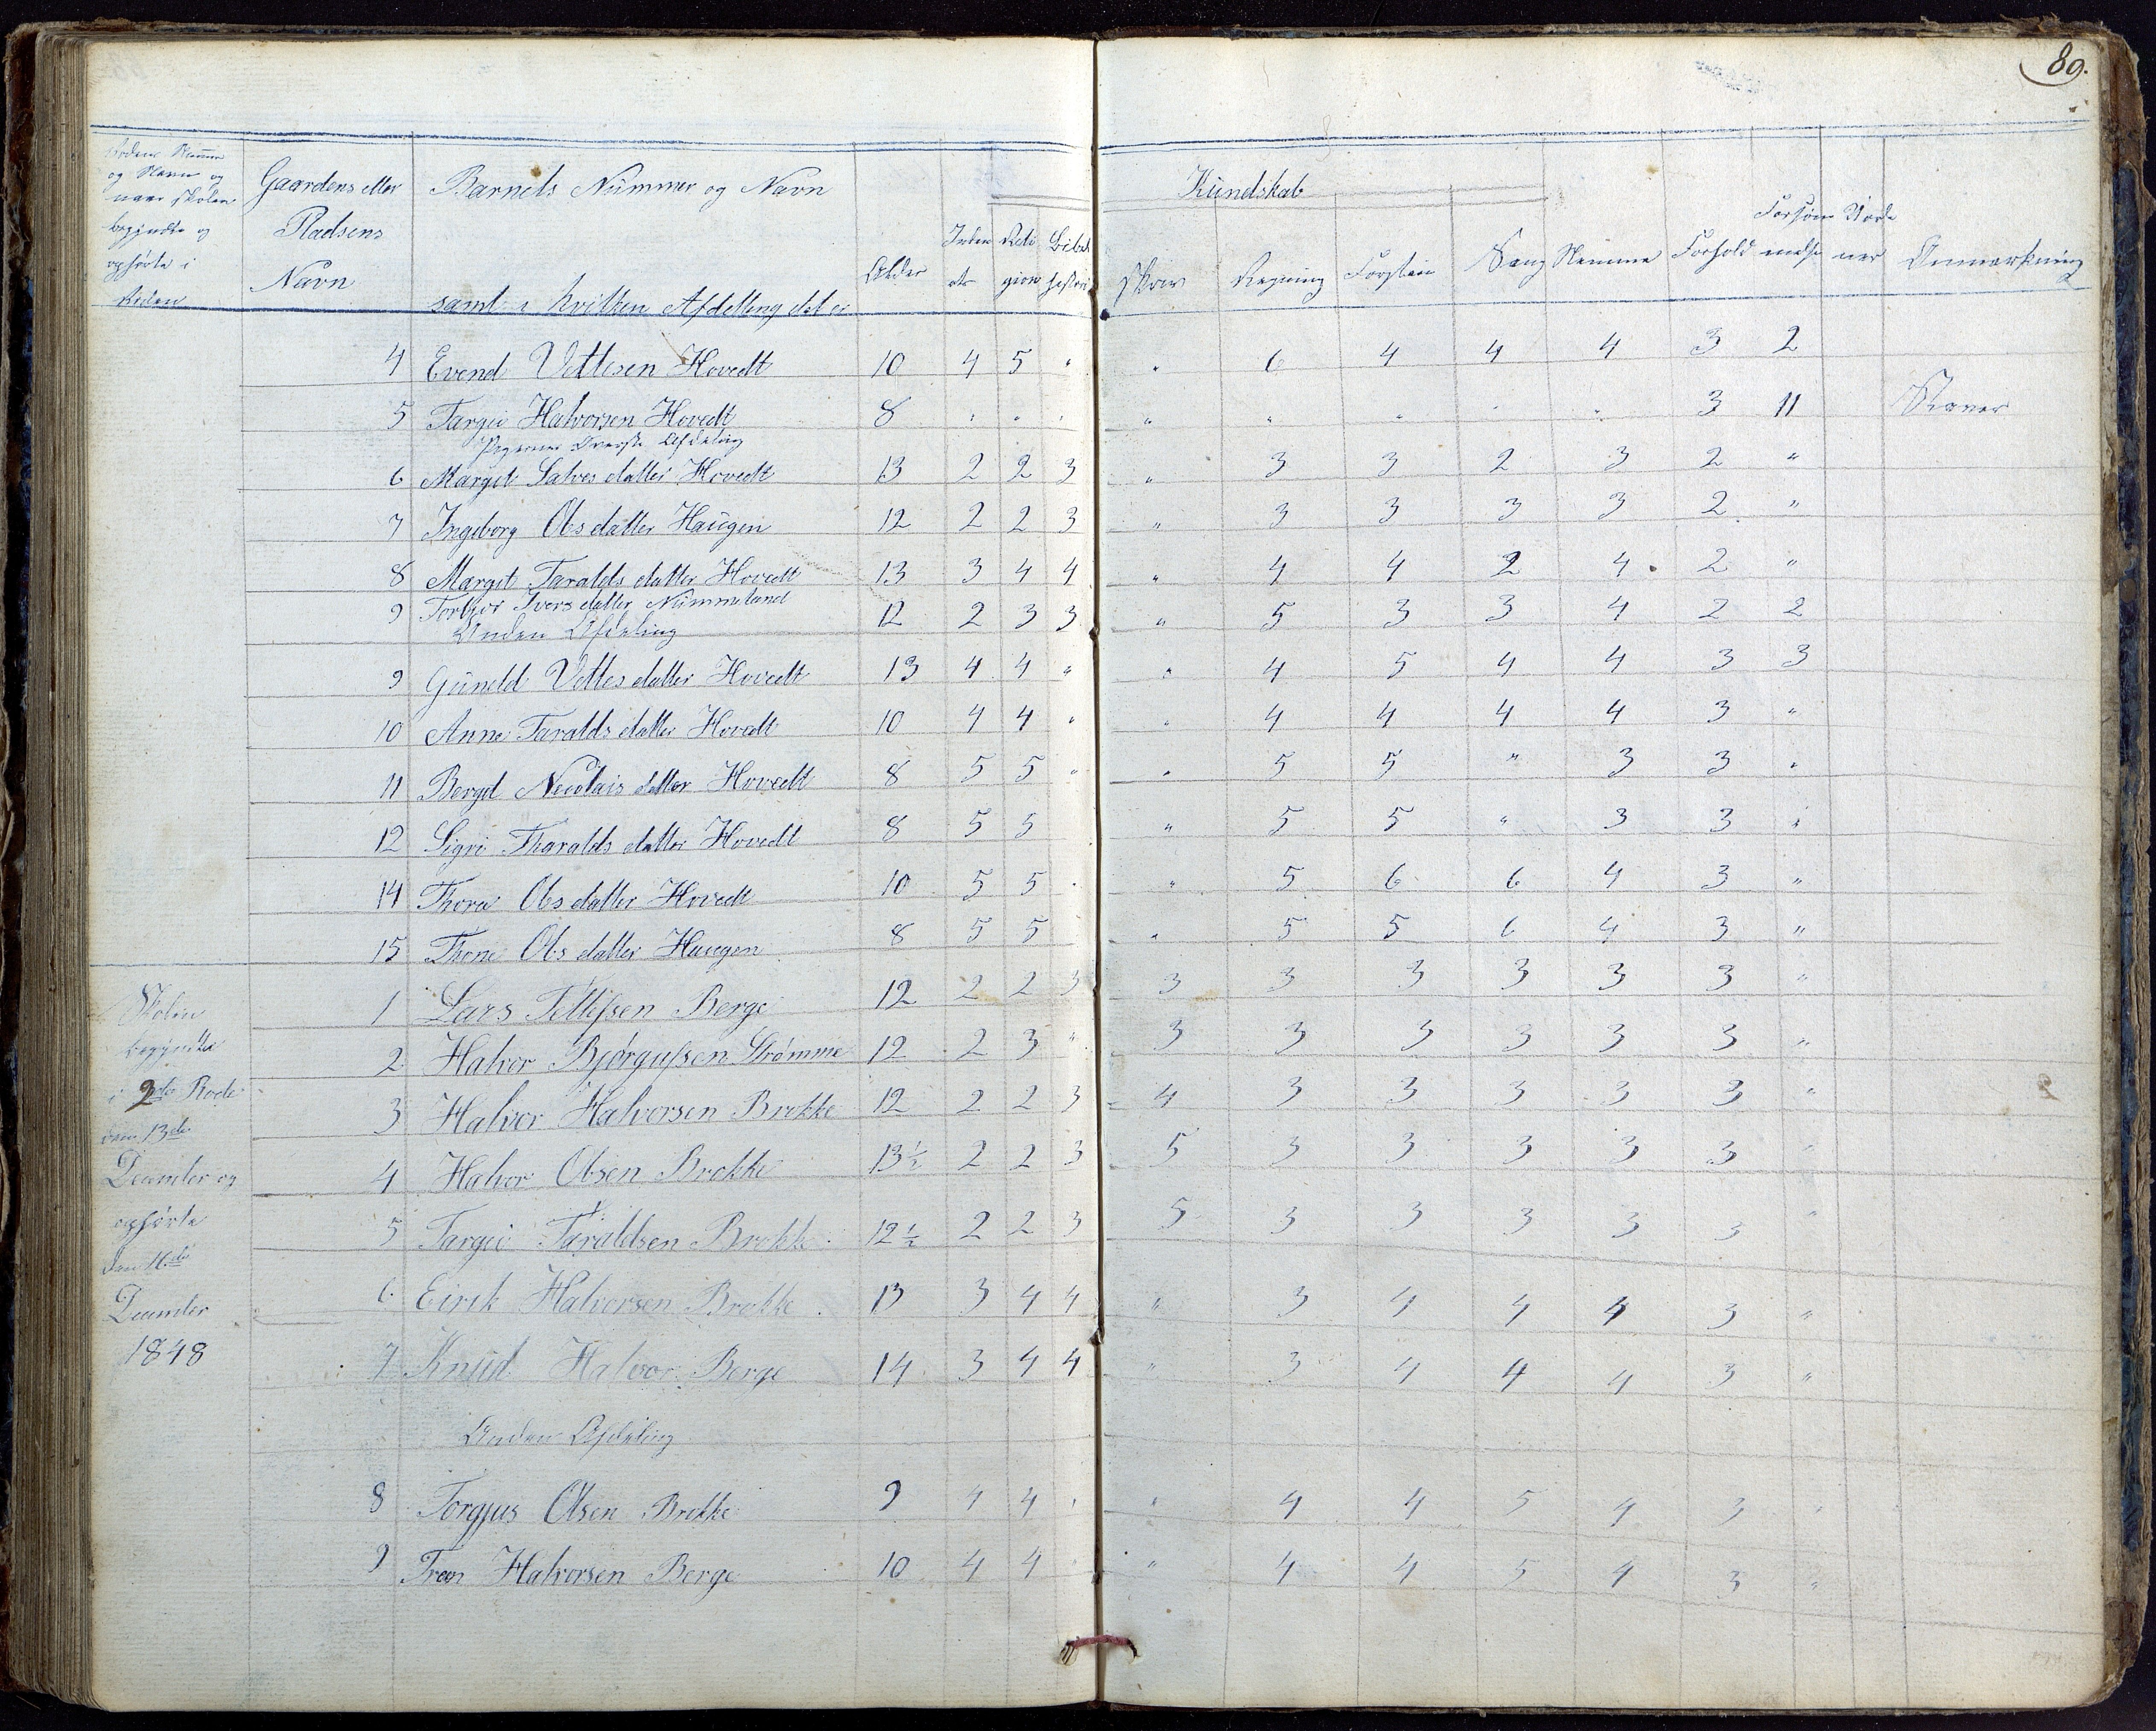 89.
Rodens Numer
og Navn og
naar skolen
begyndte og
ophørte i
Roden
Gaardens eller
Pladsens
Navn
Barnets Nummer og Navn
samt i hvilken Afdeling det er
Alder
Inden
ats
Reli
gion
Bibel
histori
Kundskab
Skriv
Regning
Forstan
Sang
Nemme
Forhold
Forsøm
melse
Anmærkning
4 Evend Vettesen Hovedt 10 4 5 " " 6 4 4 4 3 2
5 Targei Halvorsen Hovedt 8 " " " " " " " " 3 11 Staver
Pigernes Øverste Afdeling
6 Margit Salves datter Hovedt 13 2 2 3 " 3 3 2 3 2 "
7 Ingeborg Ols datter Haugen 12 2 2 3 " 3 3 3 3 2 "
8 Margit Taralds datter Hovedt 13 3 4 4 " 4 4 2 4 2 "
9 Torbjør Ivers datter Nummeland 12 2 3 3 " 5 3 3 4 2 2
Anden Afdeling
9 Guneld Vettes datter Hovedt 13 4 4 " " 4 5 4 4 3 3
10 Anne Taralds datter Hovedt 10 4 4 " " 4 4 4 4 3 "
11 Bergit Nicolais datter Hovedt 8 5 5 " " 5 5 " 3 3 "
12 Sigri Tharalds datter Hovedt 8 5 5 " 5 5 " 3 3 "
14 Thora Ols datter Hovedt 10 5 5 " " 5 6 6 4 3 "
15 Thone Ols datter Haugen 8 5 5 " 5 5 6 4 3 "
Skolen
begyndte
i 2de Rode
den 13de
December og
ophørte
den 16de
December
1848
1 Lars Tellefsen Berge 12 2 2 3 3 3 3 3 3 3 "
2 Halvor Bjørgufsen Strømme 12 2 3 " 3 3 3 3 3 3 "
3 Halvor Halvorsen Brokke 12 2 2 3 4 3 3 3 3 3 "
4 Halvor Olsen Brokke 13½ 2 2 3 5 3 3 3 3 3 "
5 Targei Taraldsen Brokke 12½ 2 2 3 5 3 3 3 3 3 "
6 Eirik Halvorsen Brokke 13 3 4 4 " 3 4 4 4 3 "
7 Knud Halvor Berge 14 3 4 4 " 3 4 4 4 3 "
Anden Afdeling
8 Torgjus Olsen Brokke 9 4 4 " " 4 4 5 4 3 "
9 Tron Halvorsen Berge 10 4 4 " " 4 4 5 4 3 "